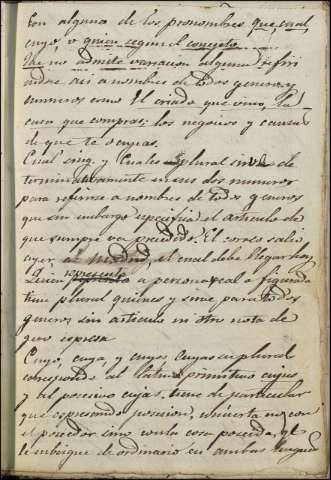 con alguno de los pronombres que, cual,
cuyo, o quien segun el concepto.
Que no admite variacion alguna refiri
endose asi a nombres de todos generos y
numeros como El criado que vino, la
casa que compras; los negocios y causas
de que te ocupas.
Cual sing. y Cuales plural sirve de
terminativamente en sus dos numeros
para referirse a nombres de todos generos
que sin embargo especifica el articulo de
que siempre va precedido. El correo salio
ayer, el cual debe llegar hoy
Quien representa a persona real o figurada
tiene plural quienes y sirve para todos
generos sin articulo ni otra nota de
gen espresa
Cuyo, cuya, y cuyos cuyas en plural
corresponde al latino primitivo cujus
y al posesivo cujas, tiene de particular
que espresando posesion, concierta no con
el poseedor sino con la cosa poseida,
de ordinario en ambas lenguas